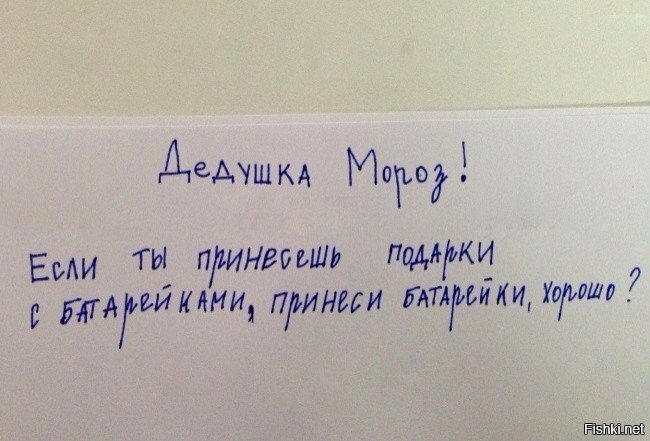 Дедушка Мороз!
Если ты принесешь подарки
с батарейками, принеси батарейки, хорошо?
Fishki.net